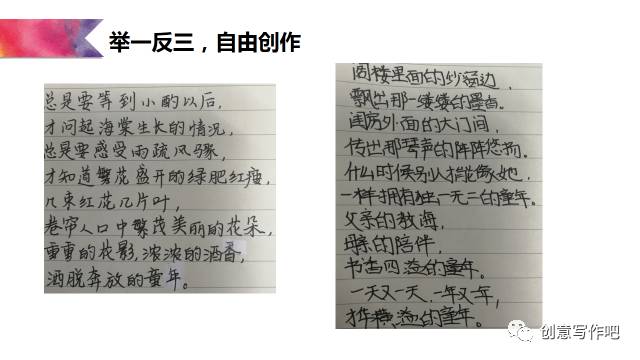 举一反三，自由创作
总是要等到小酌以后，
才问起海棠生长的情况，
总是要感受雨疏风骤，
才知道繁花盛开的绿肥红瘦，
几束红花几片叶，
卷帘人口中繁茂美丽的花朵，
重重的花影，浓浓的酒香，
洒脱奔放的童年。
阁楼里面的纱窗边，
飘出那一缕缕的墨香。
闺房外面的大门间，
传出那琴声的阵阵悠扬。
什么时候别人才能像她，
一样拥有独一无二的童年。
父亲的教诲，
母亲的陪伴，
书香四溢的童年。
一天又一天，一年又一年，
才华横溢的童年。
创意写作吧